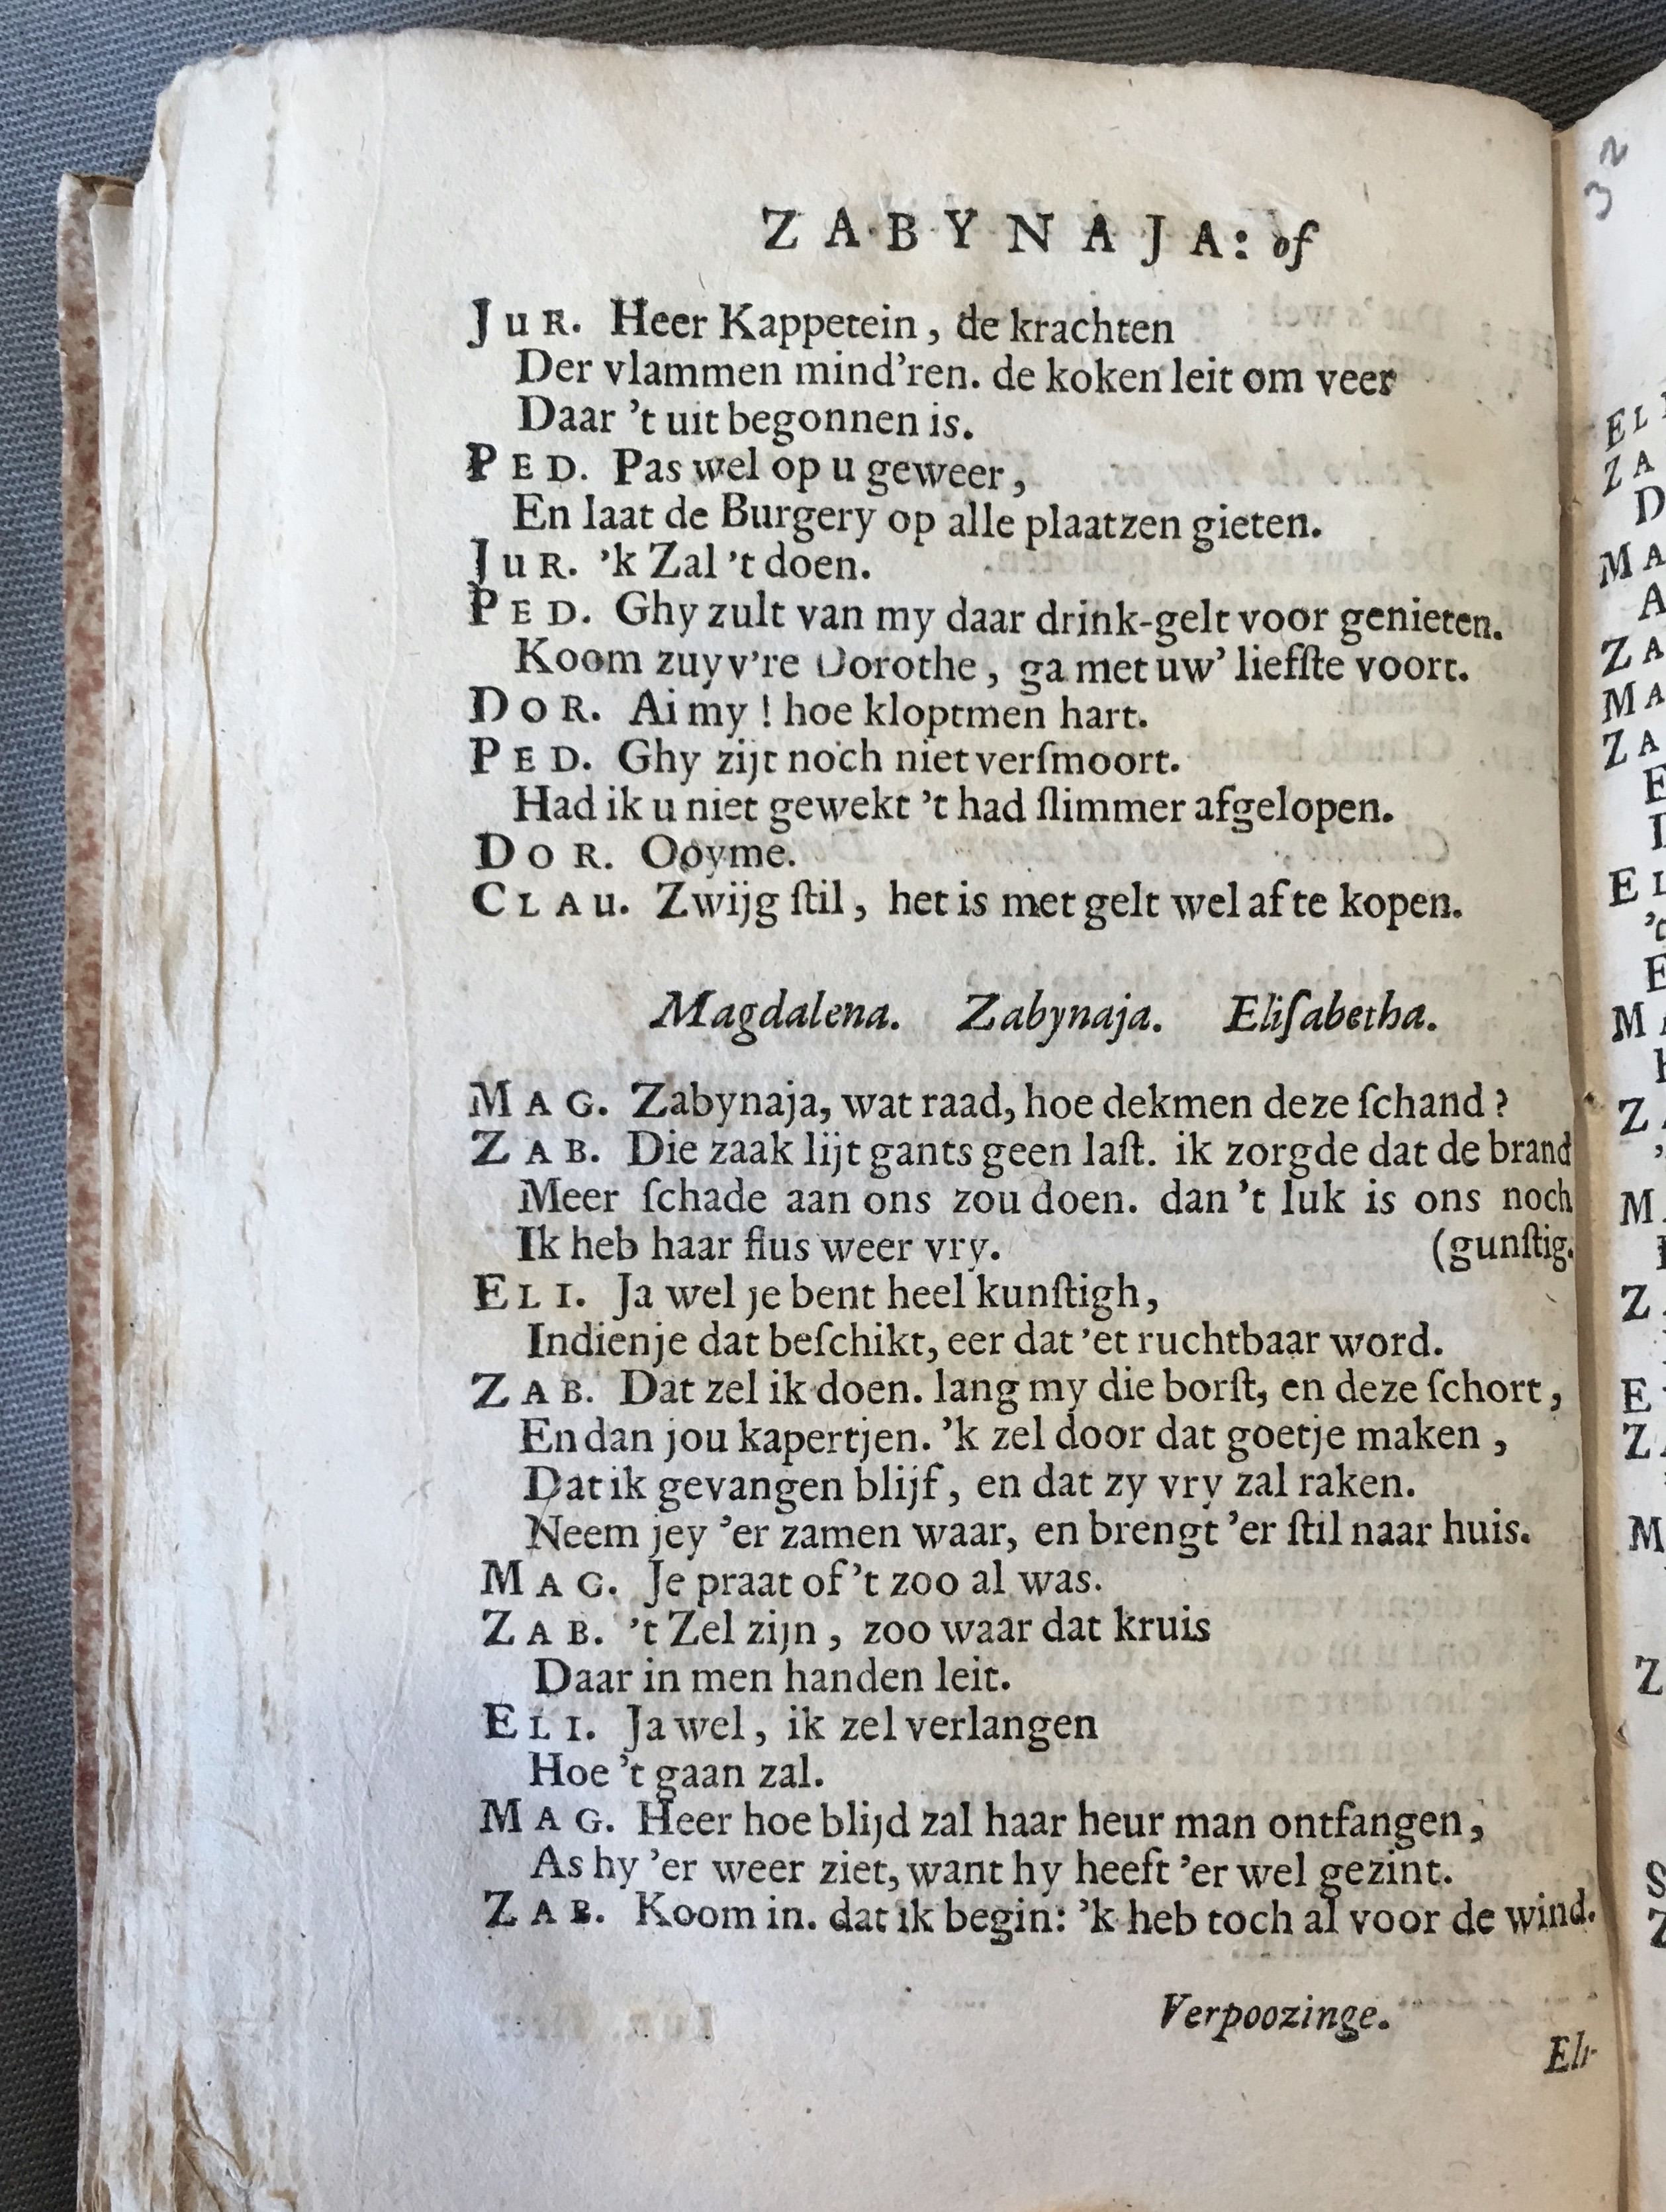 ZABYNAJA: of
JUR. Heer Kappetein, de krachten
Der vlammen mind'ren. de koken leit om veer
Daar 't uit begonnen is.
PED. Pas wel op u geweer,
En laat de Burgery op alle plaatzen gieten.
JUR. 'k Zal 't doen.
PED. Ghy zult van my daar drink-gelt voor genieten.
Koom zuyv're Dorothe, ga met uw' liefſte voort.
DOR. Ai my! hoe kloptmen hart.
PED. Ghy zijt noch niet verſmoort.
Had ik u niet gewekt 't had ſlimmer afgelopen.
DOR. Ooyme.
CLAU. Zwijg ſtil, het is met gelt wel af te kopen.
Magdalena. Zabynaja. Eliſabetha.
MAG. Zabynaja, wat raad, hoe dekmen deze ſchand?
ZAB. Die zaak lijt gants geen laſt. ik zorgde dat de brand
Meer ſchade aan ons zou doen. dan 't luk is ons noch
Ik heb haar flus weer vry. (gunſtig.
ELI. Ja wel je bent heel kunſtigh,
Indienje dat beſchikt, eer dat 'et ruchtbaar word.
ZAB. Dat zel ik doen. lang my die borſt, en deze ſchort,
En dan jou kapertjen. 'k zel door dat goetje maken,
Dat ik gevangen blijf, en dat zy vry zal raken.
Neem jey 'er zamen waar, en brengt 'er ſtil naar huis.
MAG. Je praat of 't zoo al was.
ZAB. 't Zel zijn, zoo waar dat kruis
Daar in men handen leit.
ELI. Ja wel, ik zel verlangen
Hoe 't gaan zal.
MAG. Heer hoe blijd zal haar heur man ontfangen,
As hy 'er weer ziet, want hy heeft 'er wel gezint.
ZAB. Koom in. dat ik begin: 'k heb toch al voor de wind.
Verpoozinge.
Eli-